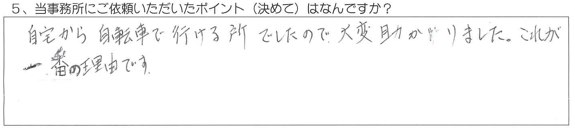 5、当事務所にご依頼いただいたポイント（決めて）はなんですか？
自宅から自転車で行ける所でしたので大変助かりました。これが
一番の理由です